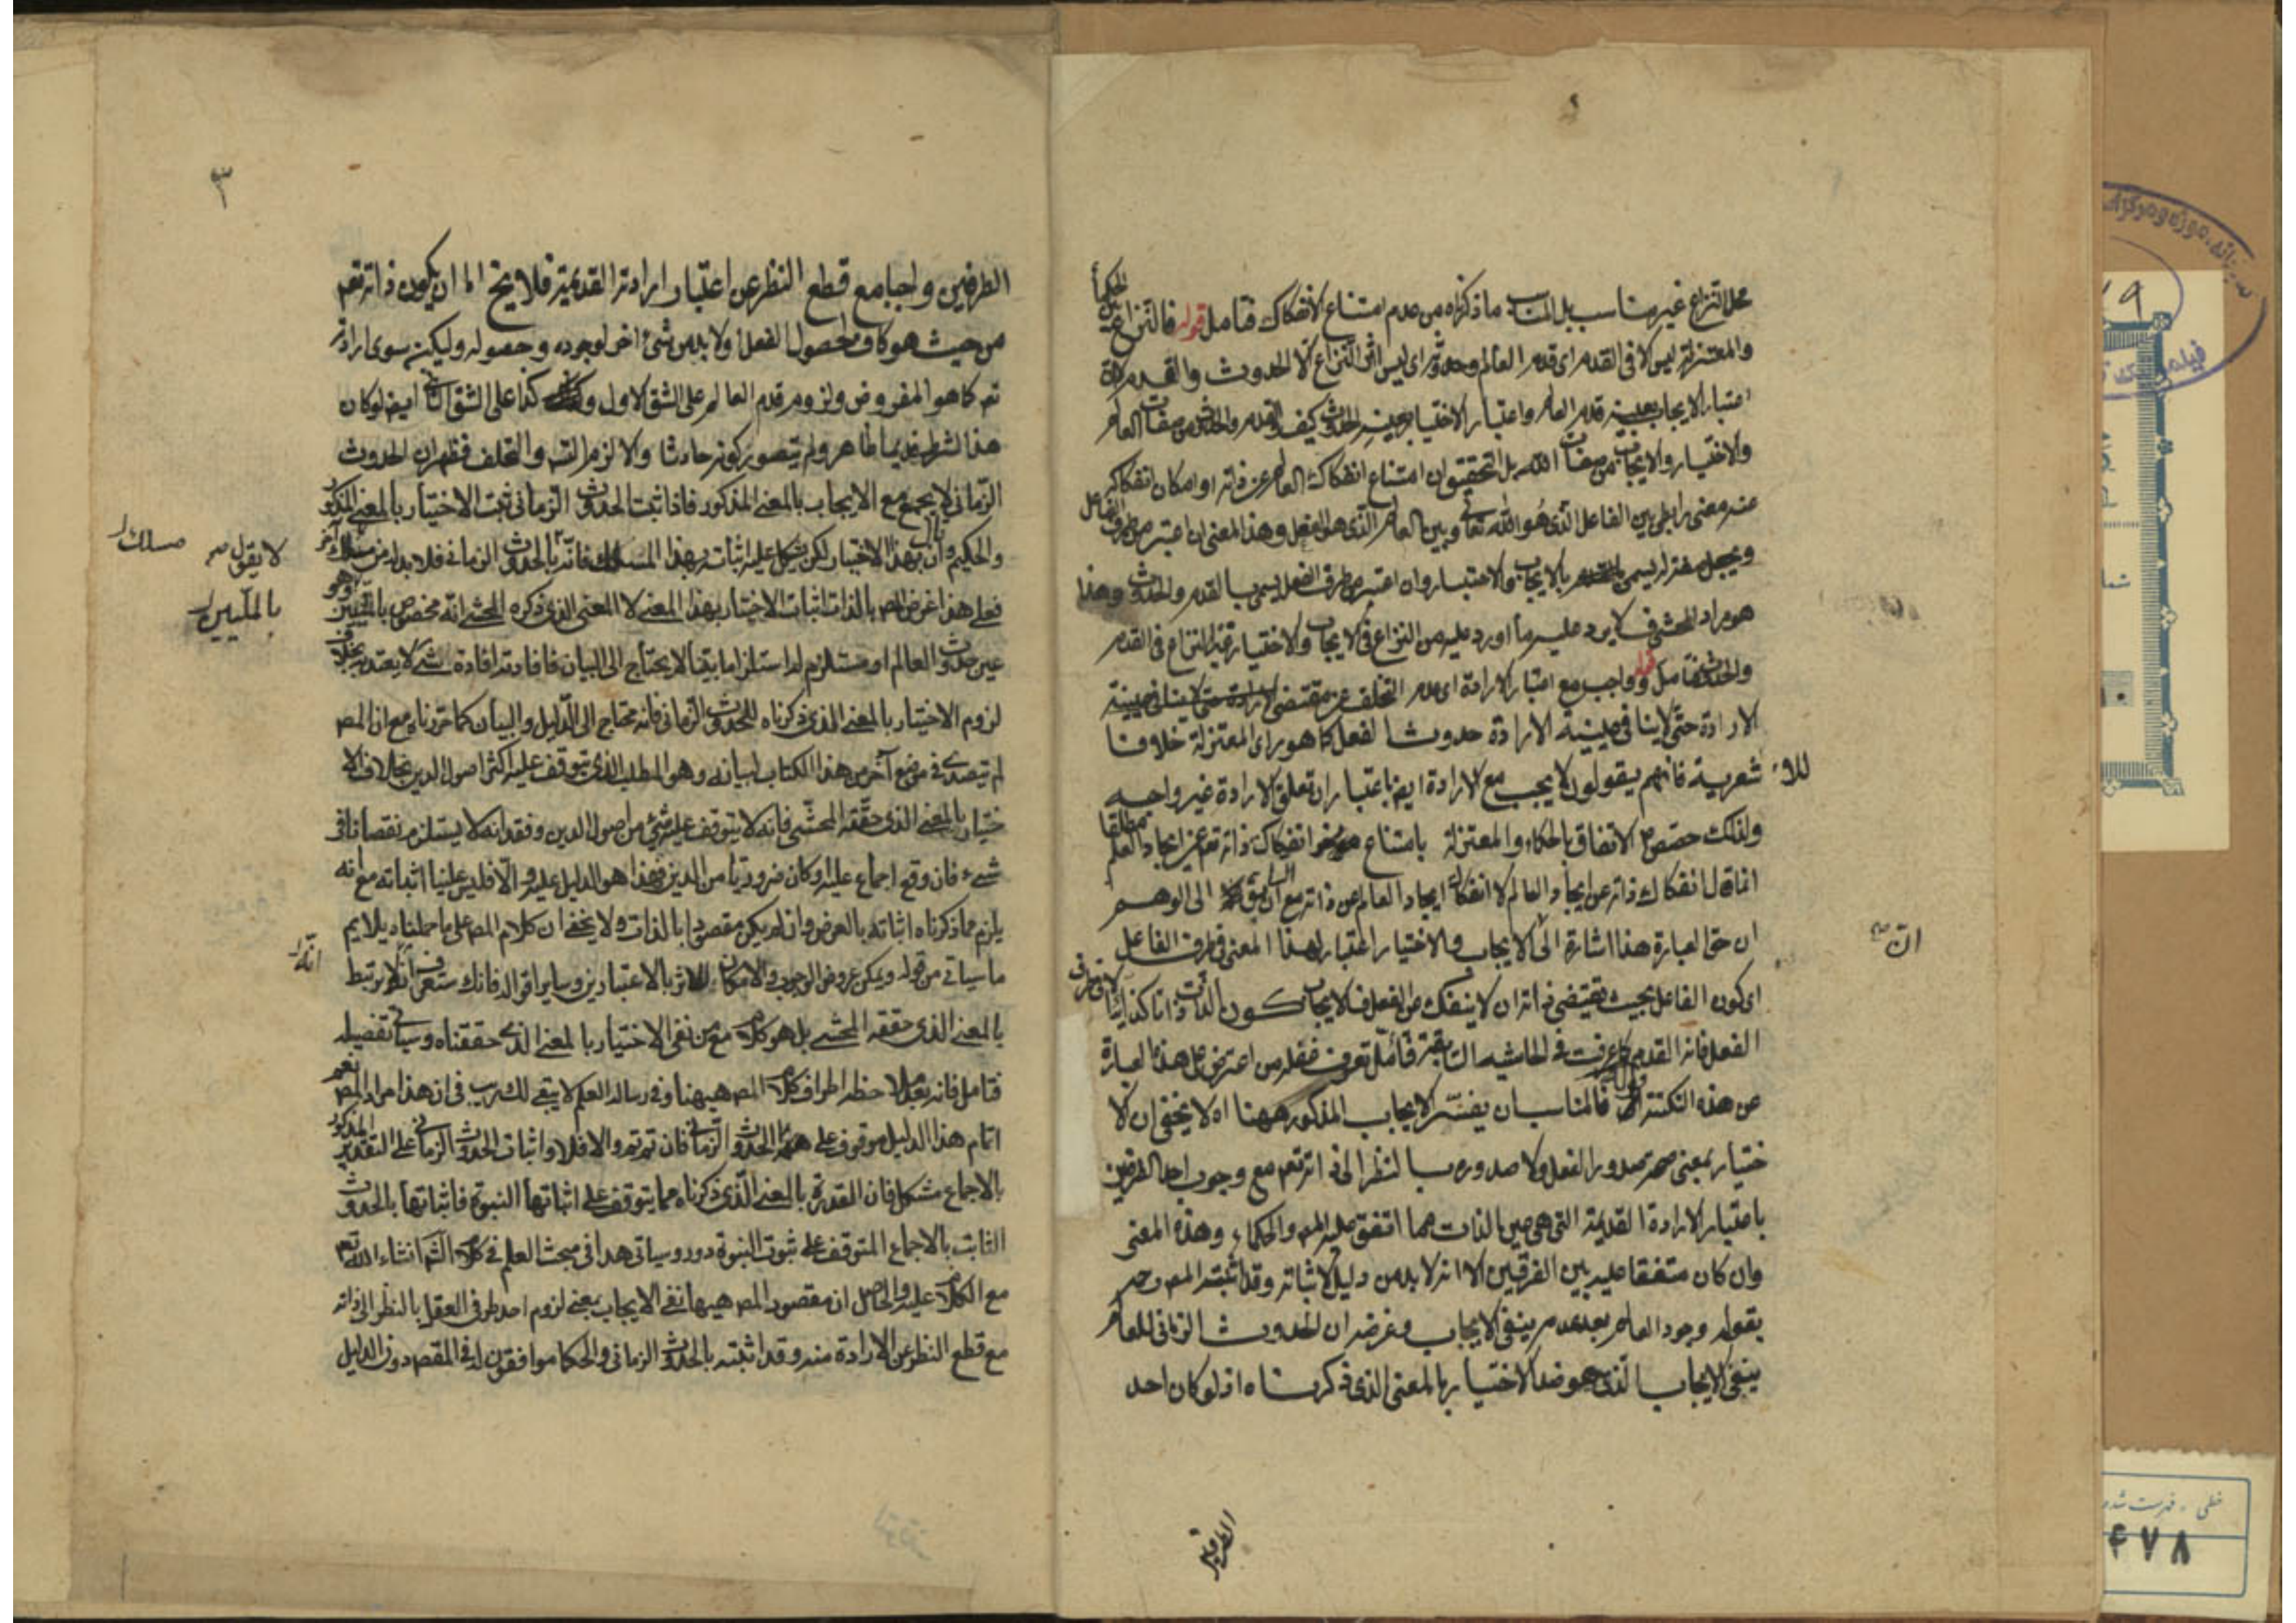 محل النزاع غير مناسب بل المناسب ما ذكرناه من عدم امتناع الانفكاك فتامل قوله فالنزاع بين الحكماء
والمعتزلة ليس الا في القدم اى قدم العالم وحدوثه اى ليس اثر النزاع الا الحدوث والقدم
اعتبار الايجاب بعينه قدم العالم واعتبار الاختيار بعينه الحدوث كيف والقدم والحدوث من صفات العالم
والاختيار والايجاب من صفات الله بل التحقيق ان امتناع انفكاك العالم عن ذاته او امكان انفكاكه
عنه معنى رابطى بين الفاعل الذى هو الله تعالى وبين العالم الذى هو الفعل وهذا المعنى ان اعتبر من طرف الفاعل
ويجعل صفة له يسمى بالايجاب والاختيار وان اعتبر من طرف الفعل يسمى بالقدم والحدوث وهذا
هو مراد المحشى فلا يرد عليه ما اورد عليه من النزاع فى الايجاب والاختيار غير النزاع فى القدم
والحدوث فتامل قوله وواجب مع اعتبار الارادة اى عدم التخلف عن مقتضى
الارادة حتى لا ينافى عينية الارادة حدوث الفعل كما هو راى المعتزلة خلافا
للاشعرية فانهم يقولون لا يجب مع الارادة ايضا باعتبار ان تعلق الارادة غير واجب
ولذلك خصص الاتفاق بالحكماء والمعتزلة بامتناع انفكاك ذاته تعم عن ايجاد العالم مطلقا
انما قال انفكاك ذاته عن ايجاد العالم لا انفكاك ايجاد العالم عن ذاته مع ان السابق الى الوهم
ان حق العبارة هذا اشارة الى ان الايجاب والاختيار اعتبار لهذا المعنى فى طرف الفاعل
اى كون الفاعل بحيث يقتضى ذاته ان لا ينفك عن الفعل فالايجاب كون الذات لا فى طرف
الفعل فانه القدم كما عرفت فى الحاشية السابقة فتامل تعرف فغفل من اعترض على هذه العبارة
عن هذه النكتة قوله فالمناسب ان يفسر الايجاب المذكور ههنا اه لا يخفى ان الا
ختيار بمعنى صحة صدور الفعل ولا صدوره بالنظر الى ذاته تعم مع وجوب احد الطرفين
باعتبار الارادة القديمة التى هى عين الذات مما اتفق عليه المص والحكماء وهذه المعنى
وان كان متفقا عليه بين الفرقين الا انه لا بد من دليل لاثباته وقد اثبته المص رحمه
بقوله وجود العالم بعد عدمه ينفى الايجاب وغرضه ان الحدوث الزمانى للعالم
ينفى الايجاب الذى هو ضد الاختيار بالمعنى الذى ذكرناه اذ لو كان احد
ان صح
٣
الطرفين واجبا مع قطع النظر عن اعتبار ارادته القديمة فلا يخ اما ان يكون ذاته تعم
من حيث هو كاف لحصول الفعل او لا بد من شئ اخر لوجوده وحصوله وليكن سوى ارادته
تعم كما هو المفروض ولزوم قدم العالم على الشق الاول وكذا على الشق الثانى ايضا لو كان
هذا الشرط قديما ظاهر ولم يتصور كونه حادثا والا لزم التسه والتخلف فظهر ان الحدوث
الزمانى لا يجمع مع الايجاب بالمعنى المذكور فاذا ثبت الحدوث الزمانى ثبت الاختيار بالمعنى المذكور
والحكيم وان قال بهذا الاختيار لكن يشكل عليه اثباته بهذا المسلك فانه لا يقول بالحدوث الزمانى فلا بد له من مسلك آخر
فعلى هذا غرض المص بالذات اثبات الاختيار بهذا المعنى لا المعنى الذى ذكره المحشى انه مخصوص بالمليين وهو
عين حدوث العالم او مستلزم له استلزاما بينا لا يحتاج الى البيان فافادته افادة شئ لا يعتد به بخلاف
لزوم الاختيار بالمعنى الذى ذكرناه للحدوث الزمانى فانه محتاج الى الدليل والبيان كما حررناه مع ان المص
لم يتصدى فى موضع آخر من هذا الكتاب لبيانه وهو المطلب الذى يتوقف عليه اكثر اصول الدين بخلاف الا
ختيار بالمعنى الذى حققه المحشى فانه لا يتوقف عليه شئ من اصول الدين وفقدانه لا يستلزم نقصانا فى
شئ فان وقع اجماع عليه او كان ضروريا من الدين فهذا هو الدليل عليه والا فليس علينا اثباته مع انه
يلزم مما ذكرناه اثباته بالعرض وان لم يكن مقصودا بالذات ولا يخفى ان كلام المص على ما حملناه يلايم
ما سياتى من قوله ويمكن عروض الوجوب والامكان للاثر بالاعتبارين وساير اقواله فانك ستعرف انه لا يرتبط
بالمعنى الذى حققه المحشى بل هو كلام مع من نفى الاختيار بالمعنى الذى حققناه وسياتى تفصيله
فتامل فانه بعد ملاحظة اطراف كلام المص هيهنا وفى رسالة العلم لا يبقى لك ريب فى ان هذا مراد المص نعم
اتمام هذا الدليل موقوف على الحدوث الزمانى فان تم تم والا فلا واثبات الحدوث الزمانى على التقدير المذكور
بالاجماع مشكل فان القدرة بالمعنى الذى ذكرناه مما يتوقف على اثباتها النبوة فاثباتها بالحدوث
الثابت بالاجماع المتوقف على ثبوت النبوة دور وسياتى هذا فى مبحث العلم فى كلام الشم انشاء الله تعم
مع الكلام عليه والحاصل ان مقصود المص هيهنا نفى الايجاب بمعنى لزوم احد طرفى العقل بالنظر الى ذاته
مع قطع النظر عن الارادة منه وقد اثبته بالحدوث الزمانى والحكما موافقون له فى المقصد دون الدليل
لا يقول صح
مسلك
بالمليين
انه
خطى - فهرست شده
۴۷۸